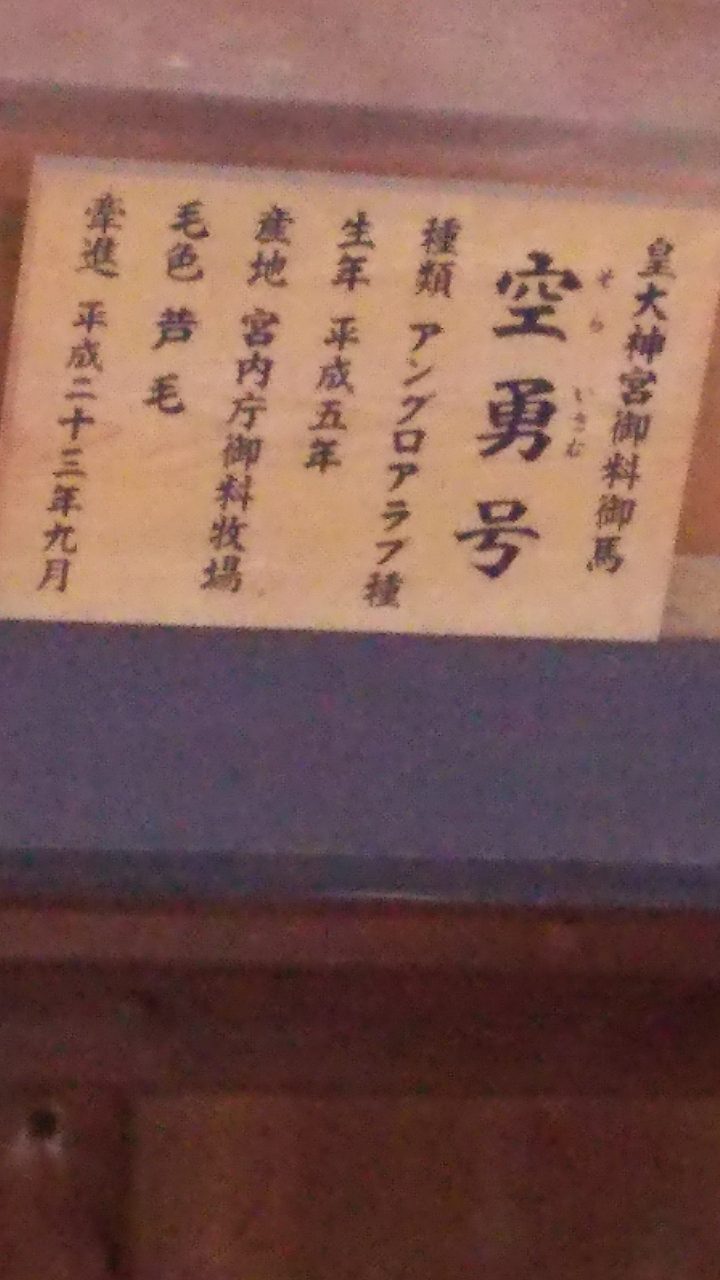 皇大神宮御料御馬
そら いさむ
空勇号
種類 アングロアラブ種
生年 平成五年
産地 宮内庁御料牧場
毛色 芦毛
牽進 平成二十三年九月